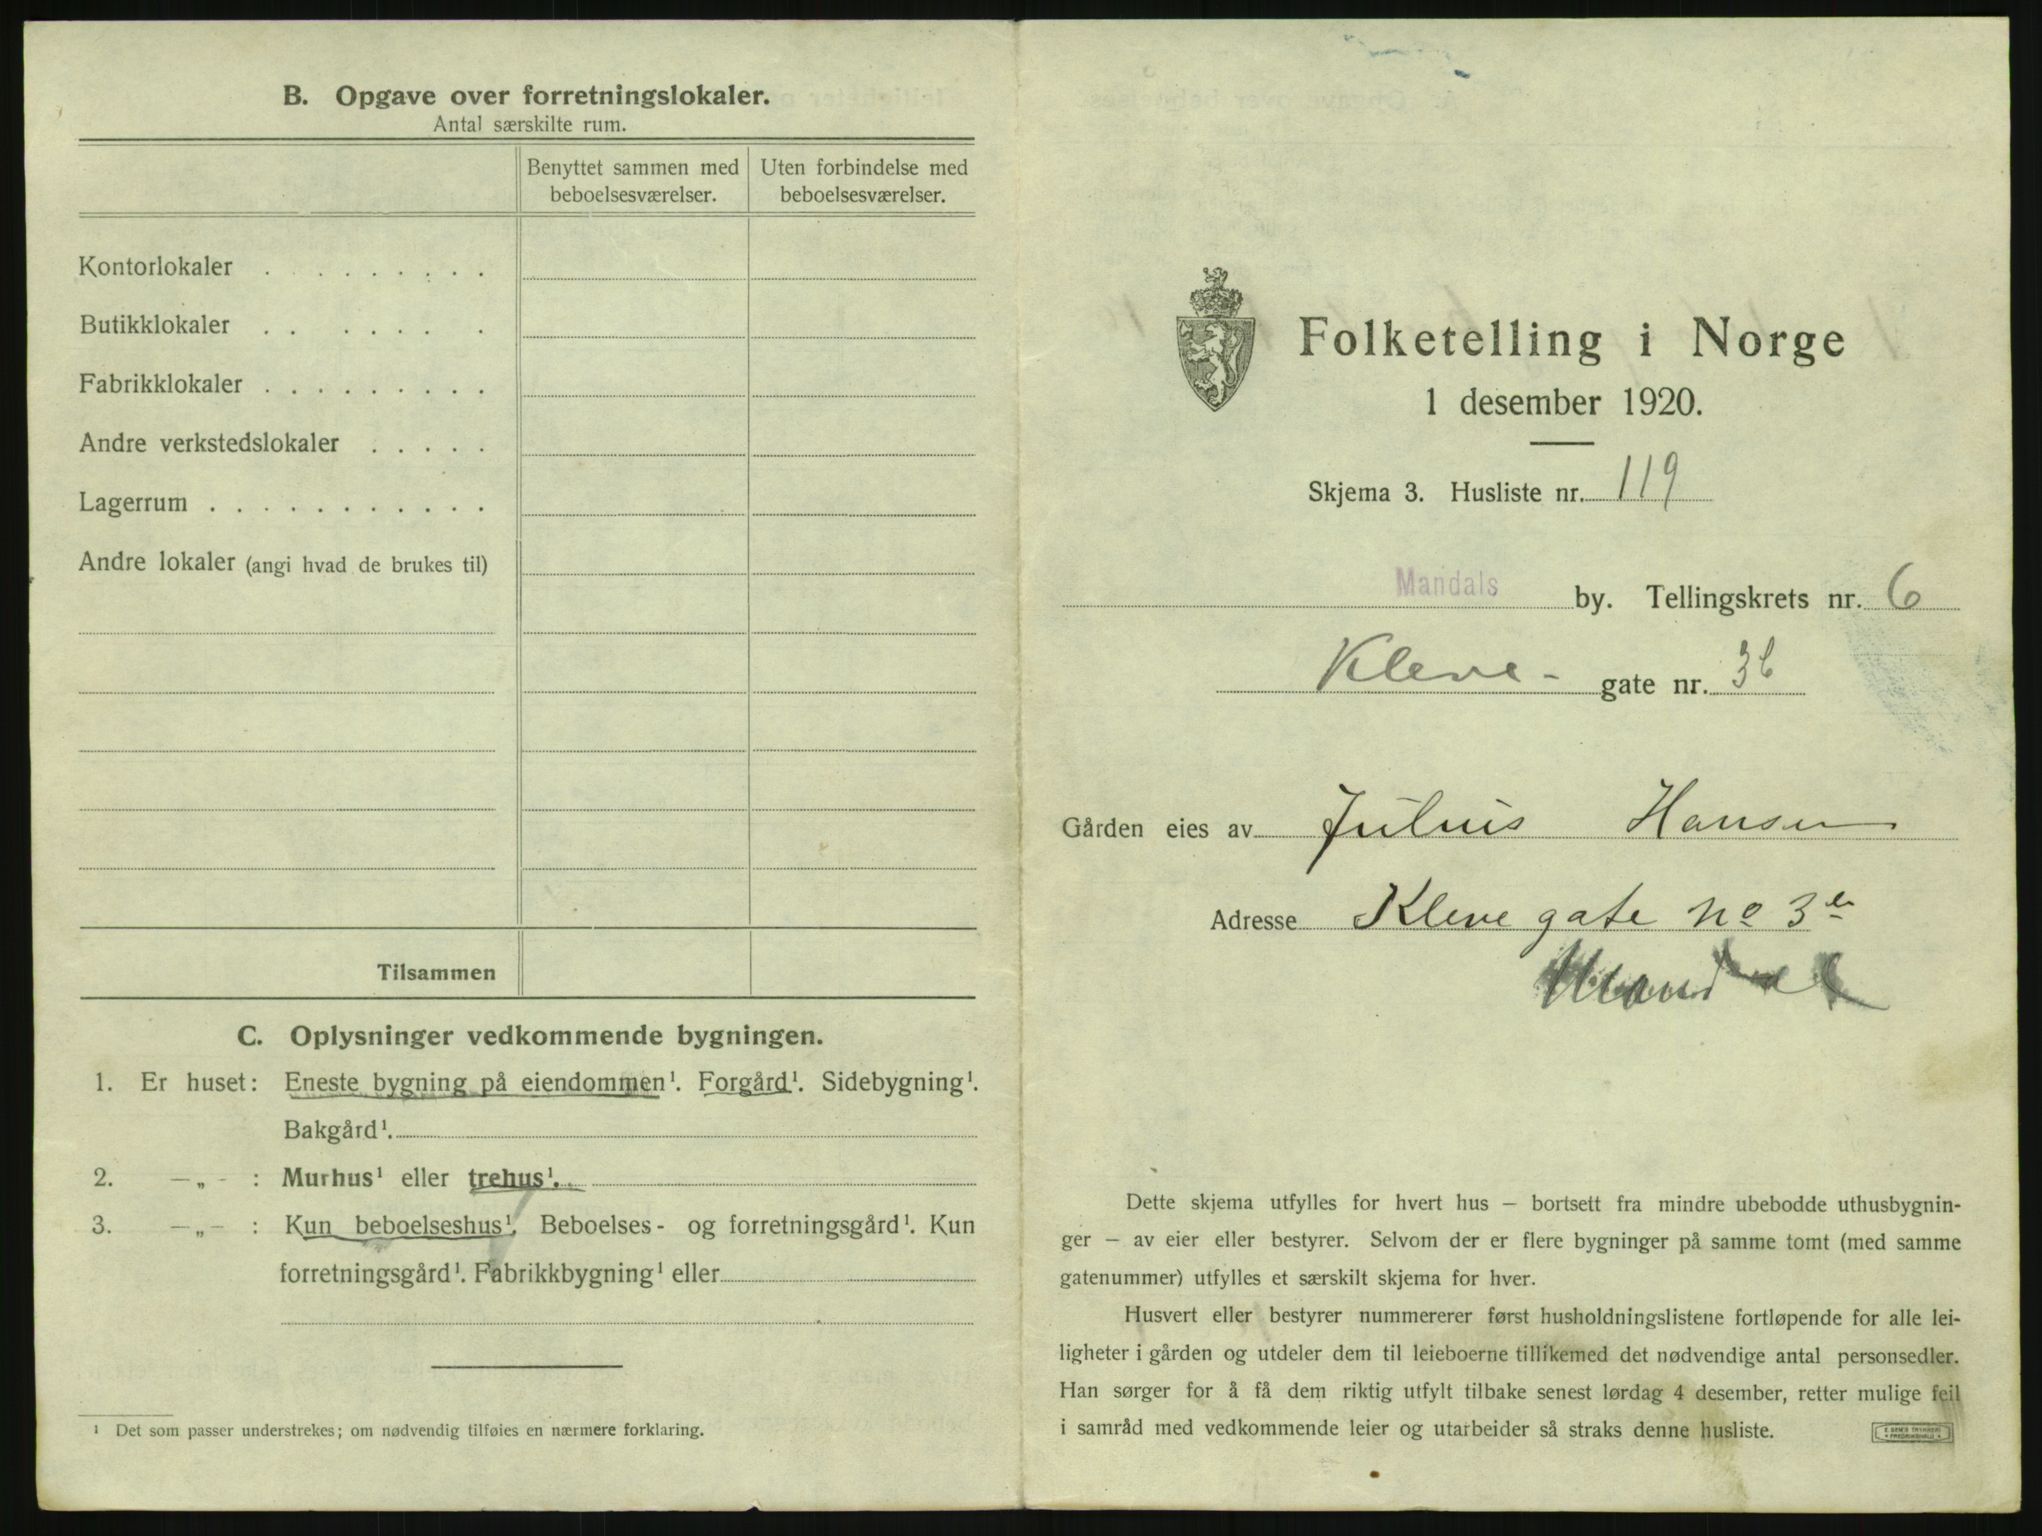 B. Opgave over forretningslokaler.
Antal særskilte rum.
Benyttet sammen med beboelsesværelser.
Uten forbindelse med beboelsesværelser.
Kontorlokaler . . . . . . . . .
Butikklokaler . . . . . . .
Fabrikklokaler . . . . . . . . .
Andre verkstedslokaler . . . . .
Lagerrum . . . . . . . . . . .
Andre lokaler (angi hvad de brukes til)
Tilsammen
C. Oplysninger vedkommende bygningen.
1. Er huset: Eneste bygning på eiendommen¹. Forgård¹. Sidebygning¹.
Bakgård¹.
2. —„— : Murhus¹ eller trehus¹.
3. —„— : Kun beboelseshus¹. Beboelses- og forretningsgård¹. Kun
forretningsgård¹. Fabrikkbygning¹ eller
¹ Det som passer understrekes; om nødvendig tilføies en nærmere forklaring.
Folketelling i Norge
1 desember 1920.
Skjema 3. Husliste nr. 119
Mandals by. Tellingskrets nr. 6
Kleve- gate nr. 36
Gården eies av Julius Hansen
Adresse Kleve gate No 3
Mandal
Dette skjema utfylles for hvert hus — bortsett fra mindre ubebodde uthusbygnin-
ger — av eier eller bestyrer. Selvom der er flere bygninger på samme tomt (med samme
gatenummer) utfylles et særskilt skjema for hver.
Husvert eller bestyrer nummererer først husholdningslistene fortløpende for alle lei-
ligheter i gården og utdeler dem til leieboerne tillikemed det nødvendige antal personsedler.
Han sørger for å få dem riktig utfylt tilbake senest lørdag 4 desember, retter mulige feil
i samråd med vedkommende leier og utarbeider så straks denne husliste.